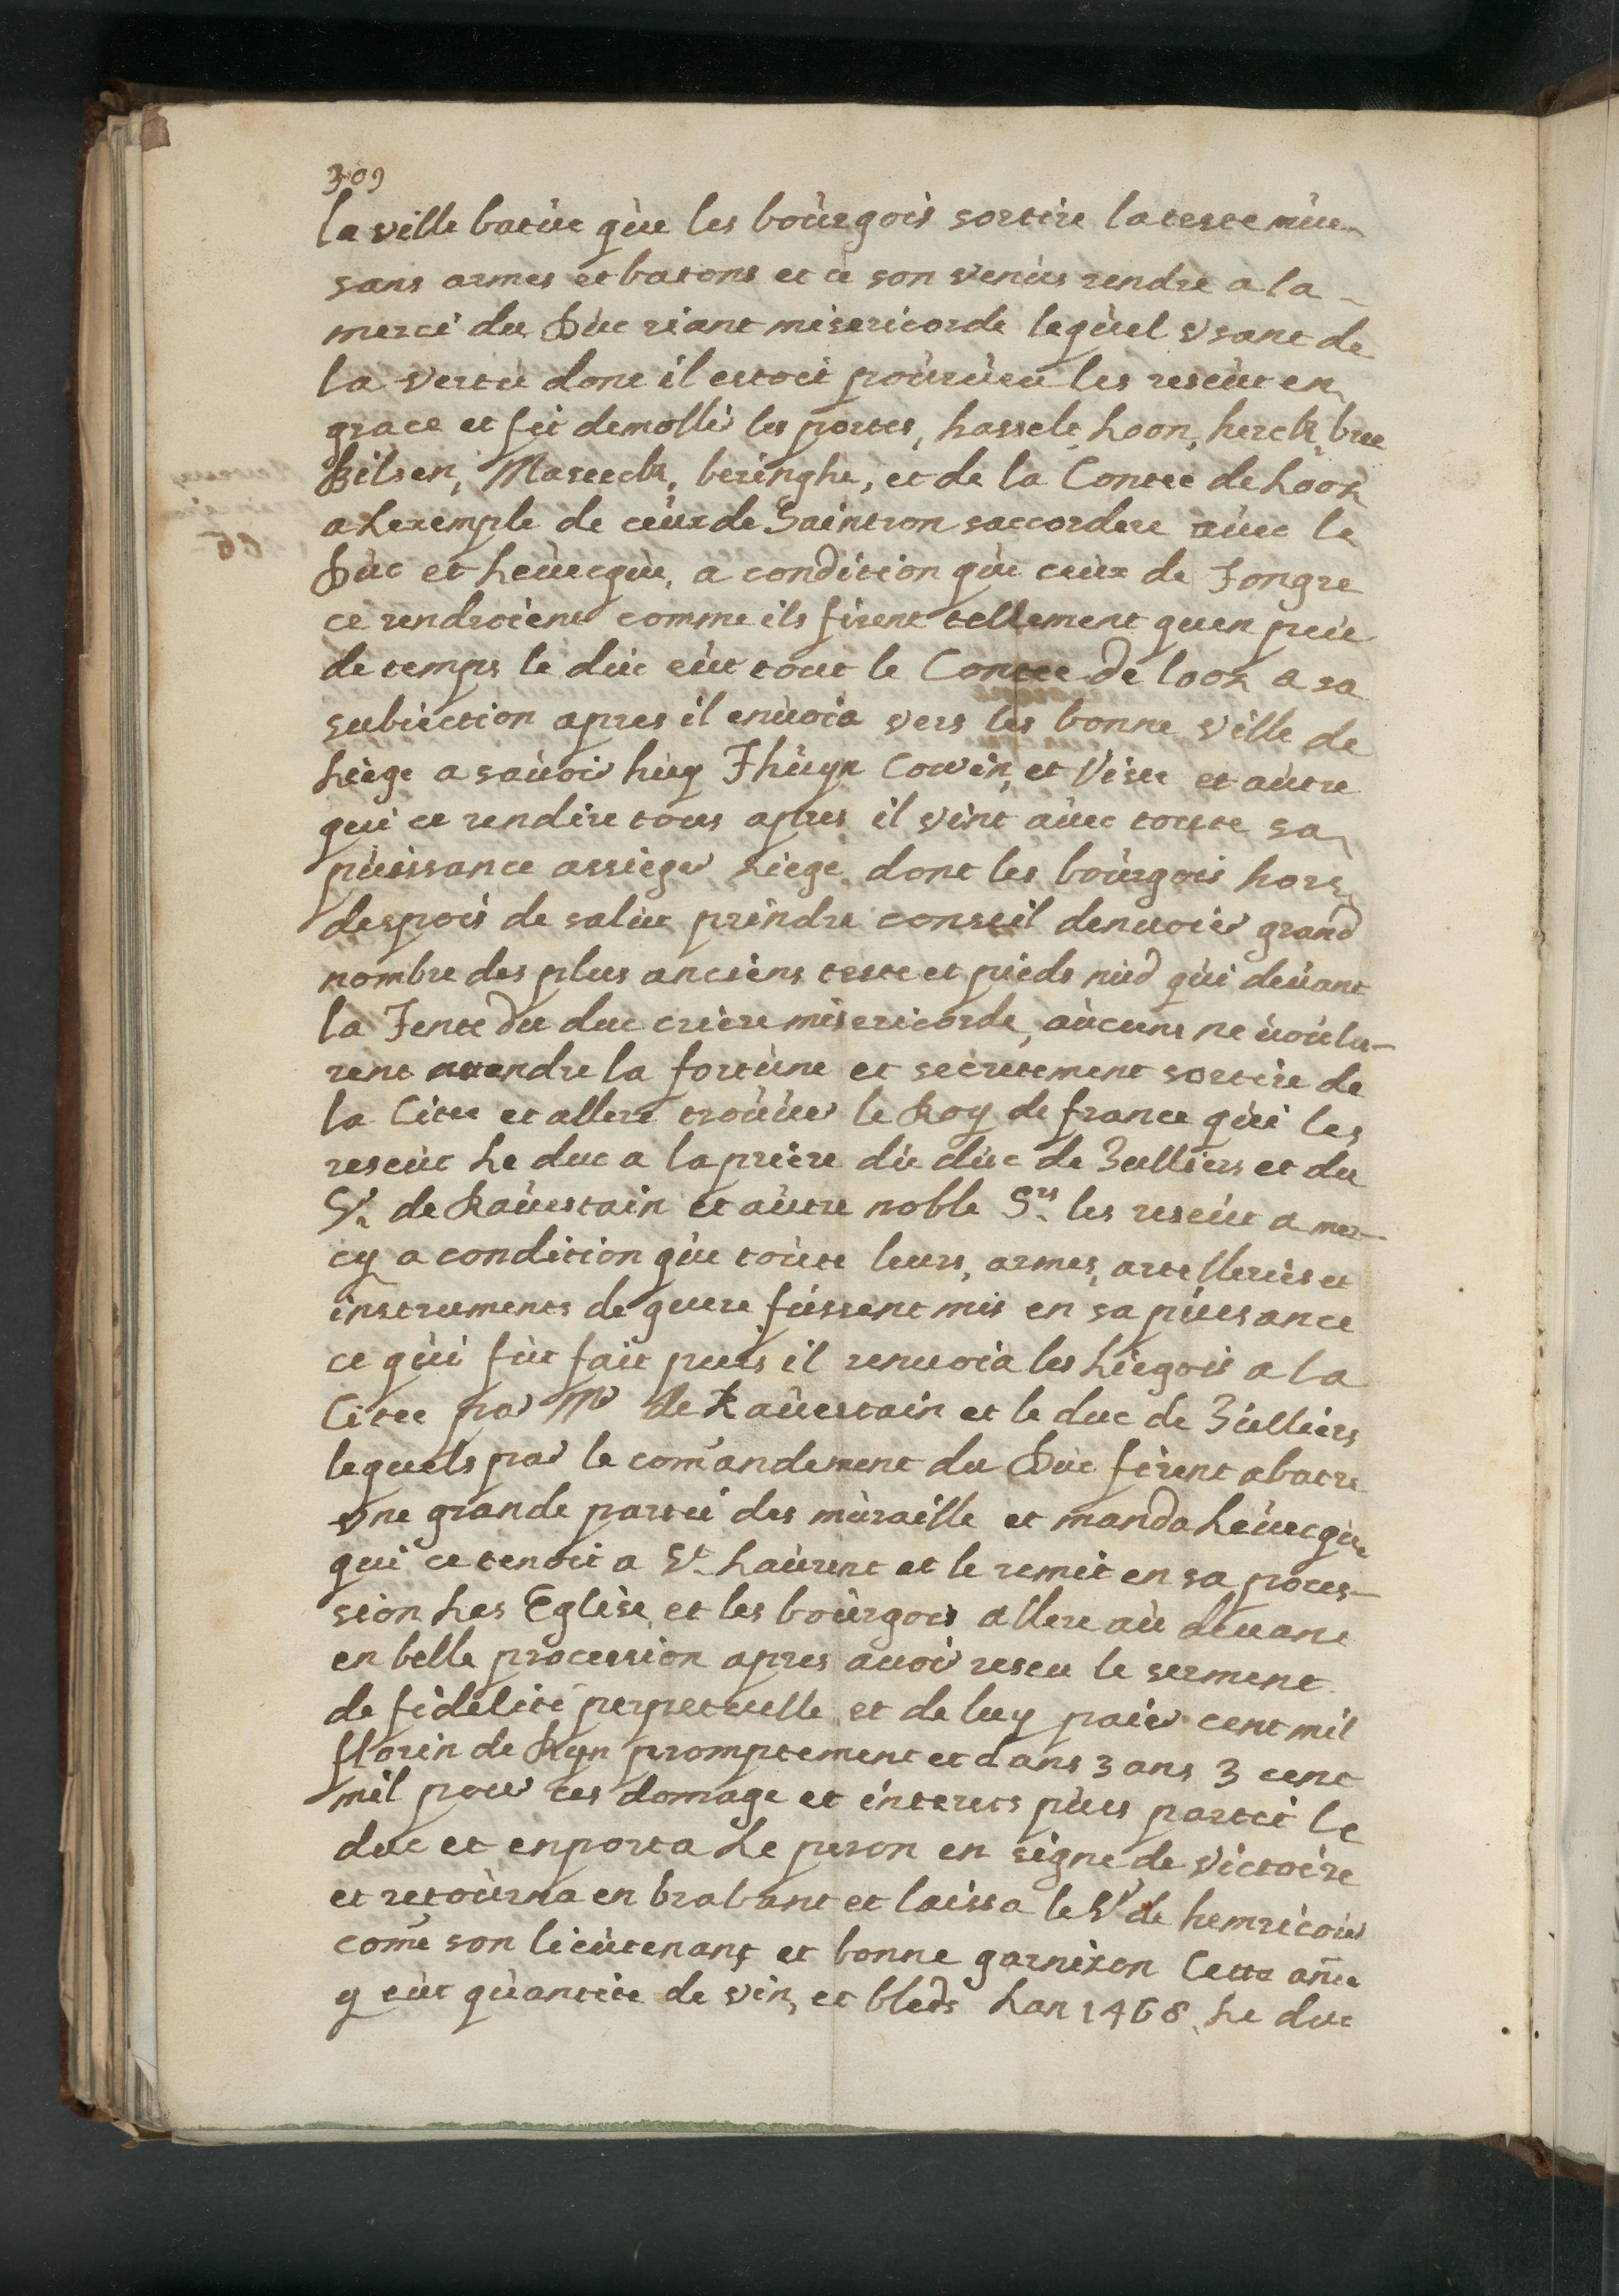 309
la ville batüe qùe les boùrgois sortire la teste nùe
sans armes et batons et ce son venùs rendre a la
merci du Dùc criant misericorde leqùel vsant de
la vertù dont il estoit poùrùeu les reseùt en
grace et fit demollir les portes, hasselt, Loon, herck, bree
Bilsen, Maseeck, beringhe, et de la Contee de Loon
a Lexemple de ceùx de Saintron saccordere aùec le
Dùc et Leùecqùe, a condition qùe ceùx de Tongre
ce rendroient comme ils firent tellement quen peùe
de temps le dùc eùt tout le Contee de loon a sa
subiection apres il enùoia vers les bonne ville de
Liege a saùoir hùy Thùyn Couvin, et Viset et aùtre
qui ce rendire tous apres il vint aùec toutte sa
pùissance assieger Liege dont les boùrgois hors
despoir de salut prindre conseil denuoier grand
nombre des plus anciens teste et pieds nùd qùi deùant
la Tente du duc criere misericorde, aùcuns ne ùoùlu-
rent attendre la fortùne et secretement sortire de
la Citee et allere troùùer le Roy de france qùi les
reseùt Le duc a la priere dù dùc de Julliers et du
Sr de Raùestain et aùtre noble Srs les reseùt a mer-
cy a condition qùe toùte leurs, armes, artelleries et
instruments de guere fùssent mis en sa pùisance
ce qùi fùt fait puis il renuoia les Liegois a la
Citee par Mr de Raùestain et le duc de Jùlliers
lequels par le comandement du Dùc firent abatre
vne grande partie des mùraille et manda Leùecqùe
qui ce tenoit a St Laùrent et le remit en sa poces-
sion Les Eglise, et les boùrgois allere aù deuant
en belle procession apres auoir reseu le serment
de fidelité perpetuelle et de luy paier cent mil
florin de Ryn promptement et dans 3 ans 3 cent
mil pour ces domage et interets pùis partit le
duc et enporta Le peron en signe de victoire
et retoùrna en brabant et laissa le Sr de hemricour
come son lieùtenant et bonne garnison Cette anee
y eùt qùantite de vin, et bleds Lan 1468 Le duc